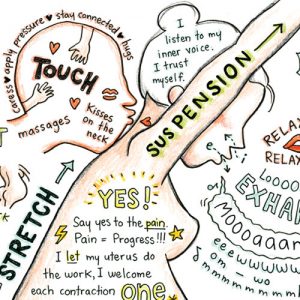 caress ♥ apply pressure ♥ stay connected ♥ hugs
TOUCH
massages
Kisses
on the
neck
I
listen to my
inner voice.
I trust
myself.
SUSPENSION
STRETCH
RELAX
RELAX
EXHA
YES!
Say yes to the pain
Pain = Progress!!!
I let my uterus do
the work, I welcome
each contraction
one